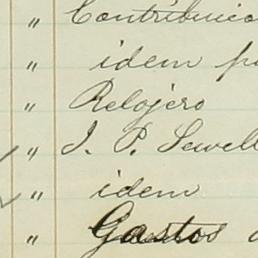 " Contribucio
" idem p
" Relojero
" J. P. Sewell
" idem
" Gastos